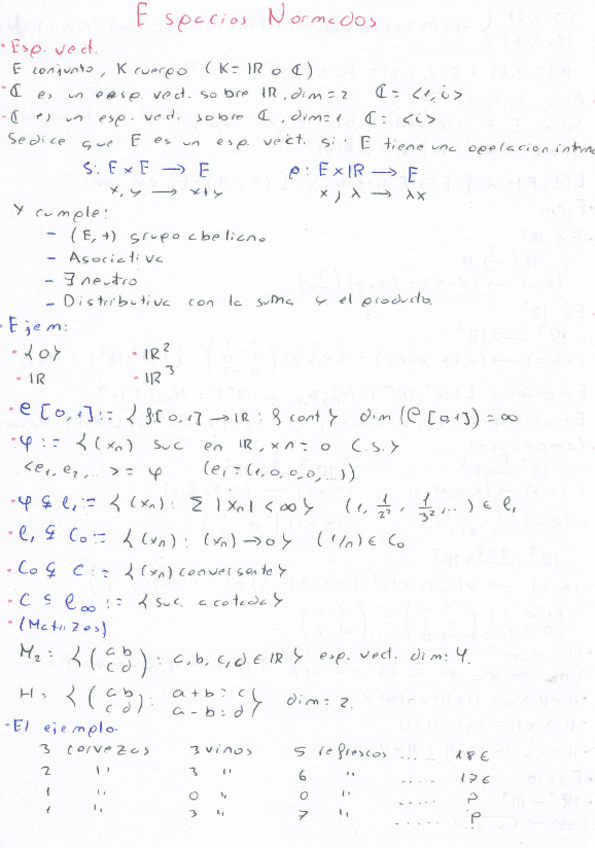 Espacios Normados
· Esp. vect.
E conjunto, K cuerpo (K = ℝ o ℂ)
· ℂ es un esp. vect. sobre ℝ, dim = 2 ℂ = <1, i>
· ℂ es un esp. vect. sobre ℂ, dim = 1 ℂ = <i>
Se dice que E es un esp. vect. si E tiene una operacion interna
s: E x E → E p: E x ℝ → E
x, y → x+y x, λ → λx
Y cumple:
- (E, +) grupo abeliano
- Asociativa
- ∃ neutro
- Distributiva con la suma y el producto.
· Ejem:
· {0} · ℝ²
· ℝ · ℝ³
· C[0,1] := {f[0,1] → ℝ : f cont} dim (C[0,1]) = ∞
· φ := {(xn) suc en ℝ, xn = 0 C.S.}
<e1, e2, ...> = φ (e1 = (1,0,0,0,...))
· φ ⊊ l1 := {(xn) : Σ |xn| < ∞} (1, 1/2², 1/3², ...) ∈ l1
· l1 ⊊ C0 := {(xn) : (xn) → 0} (1/n) ∈ C0
· C0 ⊊ C := {(xn) convergente}
· C ⊊ l∞ := {suc. acotada}
· (Matrizes)
M2 = {(a b / c d) : a, b, c, d ∈ ℝ} esp. vect. dim: 4.
H = {(a b / c d) : a + b = c / a - b = d} dim = 2.
· El ejemplo.
3 cervezas 3 vinos 5 refrescos ...... 18€
2 " 3 " 6 " ..... 17€
1 " 0 " 0 " ..... ?
1 " 3 " 7 " ...... ?